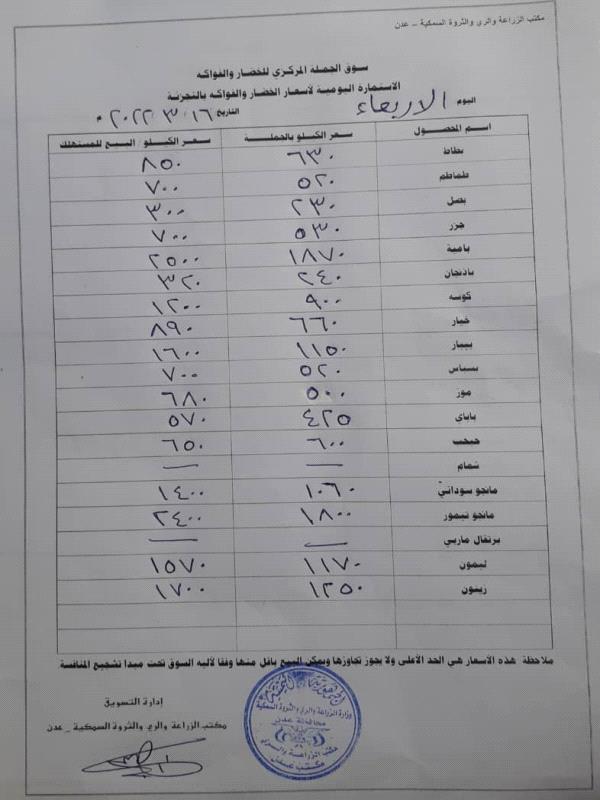 مكتب الزراعة والري والثروة السمكية – عدن
سوق الجملة المركزي للخضار والفواكه
الاستمارة اليومية لأسعار الخضار والفواكه بالتجزئة
اليوم الاربعاء التاريخ ١٦ / ٣ / ٢٠٢٢ م
اسم المحصول سعر الكيلو بالجملة سعر الكيلو / البيع للمستهلك
بطاط ٦٣٠ ٨٥٠
طماطم ٥٢٠ ٧٠٠
بصل ٢٣٠ ٣٠٠
جزر ٥٣٠ ٧٠٠
بامية ١٨٧٠ ٢٥٠٠
باذنجان ٢٤٠ ٣٢٠
كوسه ٩٠٠ ١٢٠٠
خيار ٦٦٠ ٨٩٠
بيبار ١١٥٠ ١٦٠٠
بسباس ٥٢٠ ٧٠٠
موز ٥٠٠ ٦٨٠
باباي ٤٢٥ ٥٧٠
حبحب ٦٠٠ ٦٥٠
شمام — —
مانجو سوداني ١٠٦٠ ١٤٠٠
مانجو تيمور ١٨٠٠ ٢٤٠٠
برتقال ماربي — —
ليمون ١١٧٠ ١٥٧٠
زيتون ١٢٥٠ ١٧٠٠
ملاحظة هذه الأسعار هي الحد الأعلى ولا يجوز تجاوزها ويمكن البيع باقل منها وفقا لأليه السوق تحت مبدا تشجيع المنافسة
إدارة التسويق
مكتب الزراعة والري والثروة السمكية _ عدن
الجمهورية اليمنية
وزارة الزراعة والري والثروة السمكية
محافظة عدن
مكتب الزراعة والري
مكتب عدن